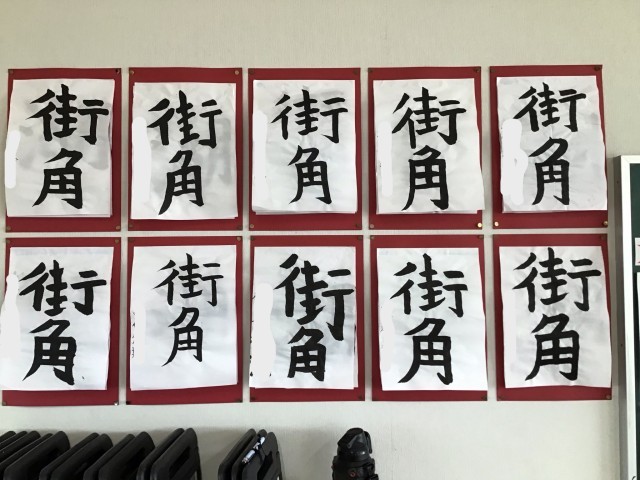 街角
街角
街角
街角
街角
街角
街角
街角
街角
街角